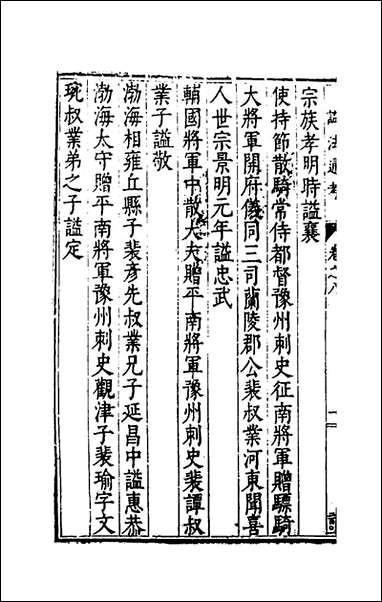 諡法通考 卷之八
宗族孝明時諡襄
使持節散騎常侍都督豫州刺史征南將軍贈驃騎
大將軍開府儀同三司蘭陵郡公裴叔業河東聞喜
人世宗景明元年諡忠武
輔國將軍中散大夫贈平南將軍豫州刺史裴譚叔
業子諡敬
渤海相雍丘縣子裴彥先叔業兄子延昌中諡惠恭
渤海太守贈平南將軍豫州刺史觀津子裴瑜字文
琬叔業弟之子諡定